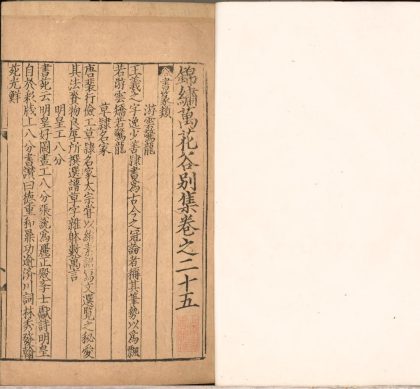 錦繡萬花谷别集卷之二十五
書篆類
游雲驚龍
王羲之字逸少善隸書爲古今之冠論者稱其筆勢以爲飄
若游雲矯若驚龍
草隸名家
唐裴行儉工草隸名家太宗嘗以絹素詔寫文選覽之秘愛
其法賚物良厚所撰選譜草字雜躰數萬言
明皇工八分
書苑云明皇好圖畫工八分張說爲麗正殿學士獻詩明皇
自於彩牋上八分書讚曰德重和羹功逾濟川詞林秀發翰
苑光鮮